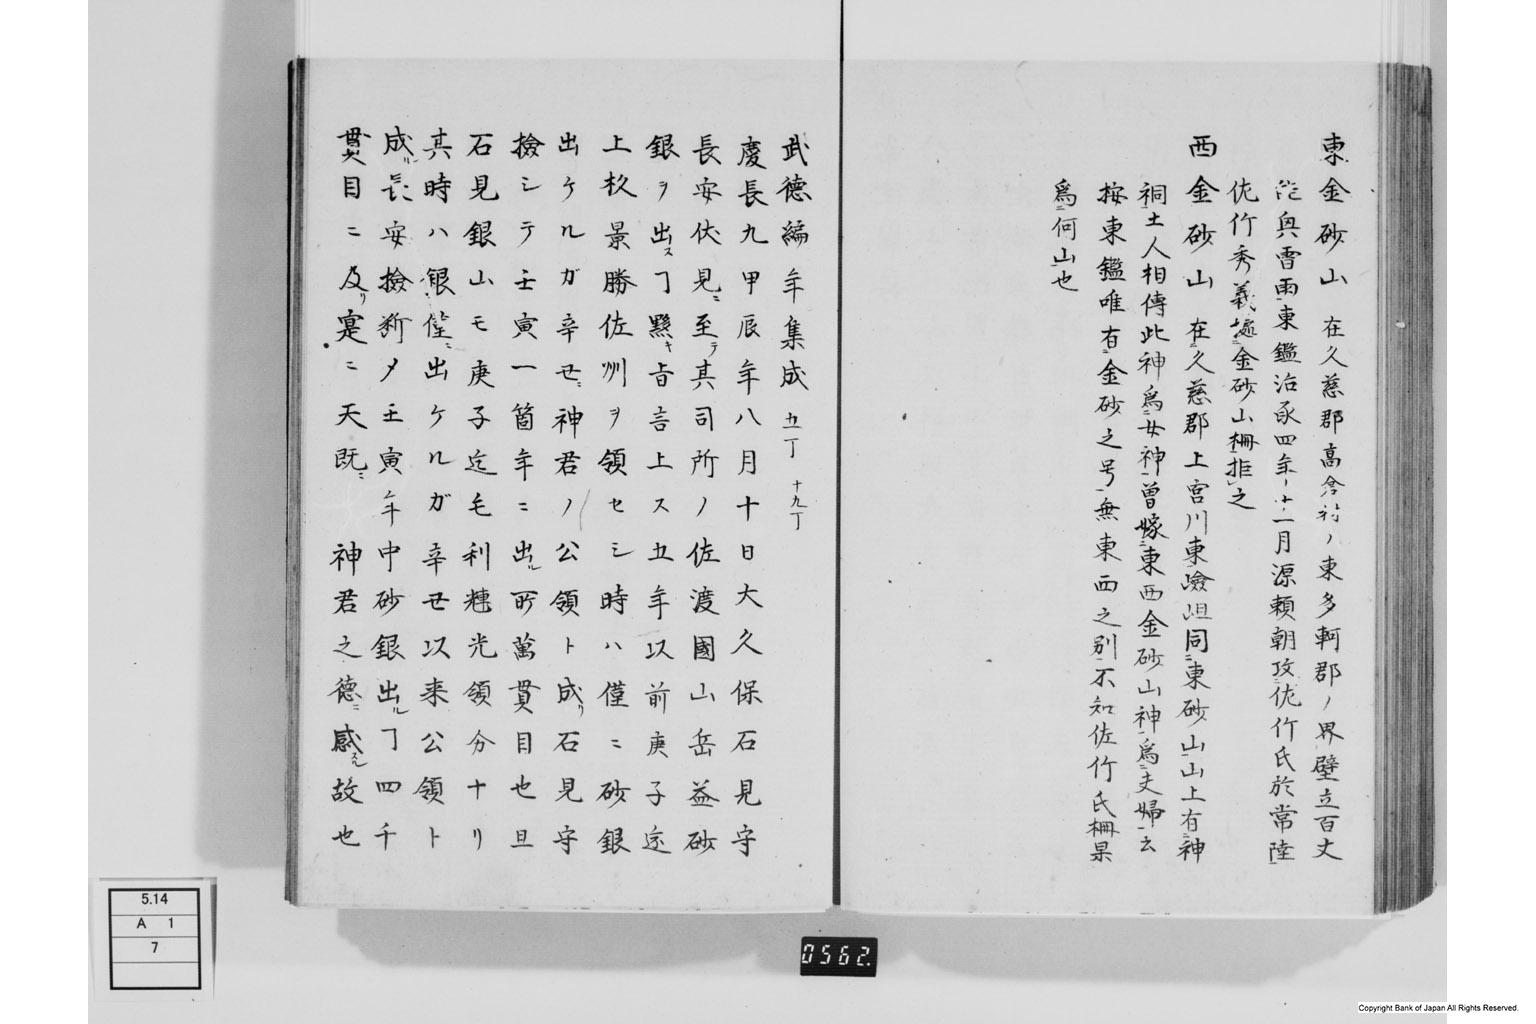 東金砂山 在久慈郡高倉村ノ東多軻郡ノ界壁立百丈
能興雷雨東鑑治承四年十一月源頼朝攻佐竹氏於常陸
佐竹秀義據金砂山柵拒之
西金砂山 在久慈郡上宮川東嶮岨同東砂山山上有神
祠土人相傳此神為女神曽嫁東西金砂山神為夫婦云
按東鑑唯有金砂之号無東西之別不知佐竹氏柵果
為何山也
武徳編年集成 五丁 十九丁
慶長九甲辰年八月十日大久保石見守
長安伏見ニ至テ其司所ノ佐渡國山岳益砂
銀ヲ出スヿ黙キ旨言上ス五年以前庚子迄
上杦景勝佐州ヲ領セシ時ハ僅ニ砂銀
出ケルガ辛丑ニ神君ノ公領ト成リ石見守
撿シテ壬寅一箇年ニ出ル所萬貫目也且
石見銀山モ庚子迄毛利輝光領分ナリ
其時ハ銀僅ニ出ケルガ辛丑以来公領ト
成ル長安撿断メ壬寅年中砂銀出ルヿ四千
貫目ニ及リ寔ニ天既ニ 神君之徳ニ感スル故也
5.14
A 1
7
0562.
Copyright Bank of Japan All Rights Reserved.